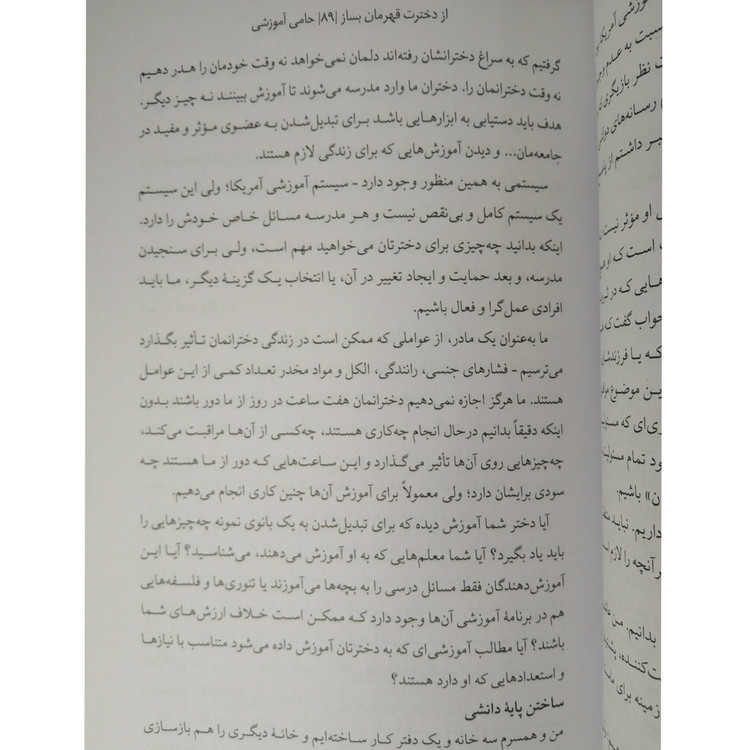 از دخترت قهرمان بساز |۸۹| حامی آموزشی
گرفتیم که به سراغ دخترانشان رفته‌اند دلمان نمی‌خواهد نه وقت خودمان را هدر دهیم
نه وقت دخترانمان را. دختران ما وارد مدرسه می‌شوند تا آموزش ببینند نه چیز دیگر.
هدف باید دستیابی به ابزارهایی باشد برای تبدیل‌شدن به عضوی مؤثر و مفید در
جامعه‌مان... و دیدن آموزش‌هایی که برای زندگی لازم هستند.
سیستمی به همین منظور وجود دارد - سیستم آموزشی آمریکا؛ ولی این سیستم
یک سیستم کامل و بی‌نقص نیست و هر مدرسه مسائل خاص خودش را دارد.
اینکه بدانید چه‌چیزی برای دخترتان می‌خواهید مهم است، ولی برای سنجیدن
مدرسه، و بعد حمایت و ایجاد تغییر در آن، یا انتخاب یک گزینهٔ دیگر، ما باید
افرادی عمل‌گرا و فعال باشیم.
ما به‌عنوان یک مادر، از عواملی که ممکن است در زندگی دخترانمان تأثیر بگذارد
می‌ترسیم - فشارهای جنسی، رانندگی، الکل و مواد مخدر تعداد کمی از این عوامل
هستند. ما هرگز اجازه نمی‌دهیم دخترانمان هفت ساعت در روز از ما دور باشند بدون
اینکه دقیقاً بدانیم درحال انجام چه‌کاری هستند، چه‌کسی از آن‌ها مراقبت می‌کند،
چه‌چیزهایی روی آن‌ها تأثیر می‌گذارد و این ساعت‌هایی که دور از ما هستند چه
سودی برایشان دارد؛ ولی معمولاً برای آموزش آن‌ها چنین کاری انجام می‌دهیم.
آیا دختر شما آموزش دیده که برای تبدیل‌شدن به یک بانوی نمونه چه‌چیزهایی را
باید یاد بگیرد؟ آیا شما معلم‌هایی که به او آموزش می‌دهند، می‌شناسید؟ آیا این
آموزش‌دهندگان فقط مسائل درسی را به بچه‌ها می‌آموزند یا تئوری‌ها و فلسفه‌هایی
هم در برنامهٔ آموزشی آن‌ها وجود دارد که ممکن است خلاف ارزش‌های شما
باشند؟ آیا مطالب آموزشی‌ای که به دخترتان آموزش داده می‌شود متناسب با نیازها
و استعدادهایی که او دارد هستند؟
ساختن پایهٔ دانشی
من و همسرم سه خانه و یک دفتر کار ساخته‌ایم و خانهٔ دیگری را هم بازسازی